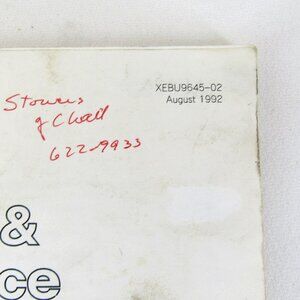 XEBU9645-02
August 1992
Stowers
622-9933
&
ce